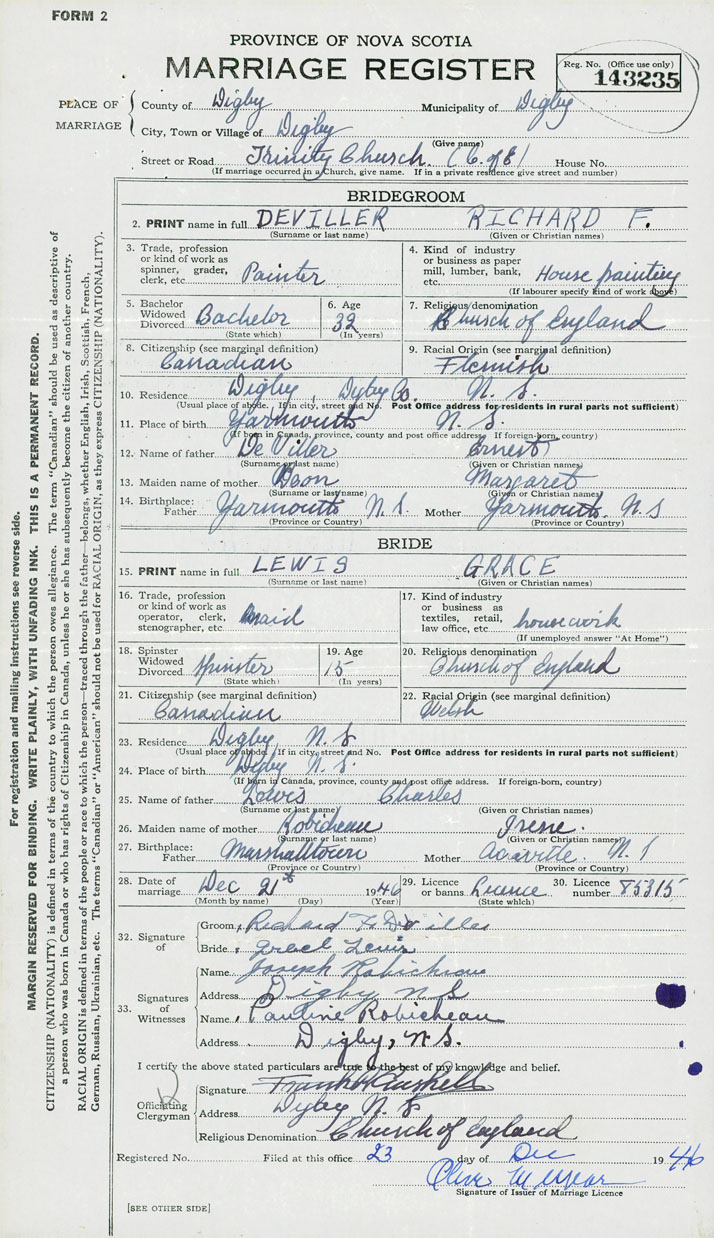 FORM 2
PROVINCE OF NOVA SCOTIA
MARRIAGE REGISTER
Reg. No. (Office use only)
143235
PLACE OF MARRIAGE
County of Digby Municipality of Digby
City, Town or Village of Digby
(Give name)
Street or Road Trinity Church (C. of E) House No.
(If marriage occurred in a Church, give name. If in a private residence give street and number)
BRIDEGROOM
2. PRINT name in full DEVILLER RICHARD F.
(Surname or last name) (Given or Christian names)
3. Trade, profession or kind of work as spinner, grader, clerk, etc. Painter
4. Kind of industry or business as paper mill, lumber, bank, etc. House painting
(If labourer specify kind of work above)
5. Bachelor Widowed Divorced Bachelor
(State which)
6. Age 32
(In years)
7. Religious denomination Church of England
8. Citizenship (see marginal definition) Canadian
9. Racial Origin (see marginal definition) Flemish
10. Residence Digby, Digby Co. N. S.
(Usual place of abode. If in city, street and No. Post Office address for residents in rural parts not sufficient)
11. Place of birth Yarmouth N. S.
(If born in Canada, province, county and post office address. If foreign-born, country)
12. Name of father De Viller Ernest
(Surname or last name) (Given or Christian names)
13. Maiden name of mother Margaret
(Surname or last name) (Given or Christian names)
14. Birthplace: Father Yarmouth N. S Mother Yarmouth. N. S
(Province or Country) (Province or Country)
BRIDE
15. PRINT name in full LEWIS GRACE
(Surname or last name) (Given or Christian names)
16. Trade, profession or kind of work as operator, clerk, stenographer, etc. Maid
17. Kind of industry or business as textiles, retail, law office, etc. housework
(If unemployed answer "At Home")
18. Spinster Widowed Divorced Spinster
(State which)
19. Age 15
(In years)
20. Religious denomination Church of England
21. Citizenship (see marginal definition) Canadian
22. Racial Origin (see marginal definition) Welsh
23. Residence Digby N. S
(Usual place of abode. If in city, street and No. Post Office address for residents in rural parts not sufficient)
24. Place of birth Digby N. S.
(If born in Canada, province, county and post office address. If foreign-born, country)
25. Name of father Lewis Charles
(Surname or last name) (Given or Christian names)
26. Maiden name of mother Robicheau Irene.
(Surname or last name) (Given or Christian names)
27. Birthplace: Father Marshalltown Mother N. S
(Province or Country) (Province or Country)
28. Date of marriage Dec 21st 1946
(Month by name) (Day) (Year)
29. Licence or banns Licence
(State which)
30. Licence number 85315
32. Signature of
Groom, Richard F. DeViller
Bride, Grace Lewis
33. Signatures of Witnesses
Name, Joseph Robicheau
Address Digby N S
Name, Pauline Robicheau
Address Digby, N. S.
I certify the above stated particulars are true to the best of my knowledge and belief.
Officiating Clergyman
Signature
Address Digby N. S
Religious Denomination Church of England
Registered No. Filed at this office 23 day of Dec 1946
Signature of Issuer of Marriage Licence
[SEE OTHER SIDE]
For registration and mailing instructions see reverse side.
MARGIN RESERVED FOR BINDING. WRITE PLAINLY, WITH UNFADING INK. THIS IS A PERMANENT RECORD.
CITIZENSHIP (NATIONALITY) is defined in terms of the country to which the person owes allegiance. The term "Canadian" should be used as descriptive of
a person who was born in Canada or who has rights of Citizenship in Canada, unless he or she has subsequently become the citizen of another country.
RACIAL ORIGIN is defined in terms of the people or race to which the person—traced through the father—belongs, whether English, Irish, Scottish, French,
German, Russian, Ukrainian, etc. The terms "Canadian" or "American" should not be used for RACIAL ORIGIN, as they express CITIZENSHIP (NATIONALITY).